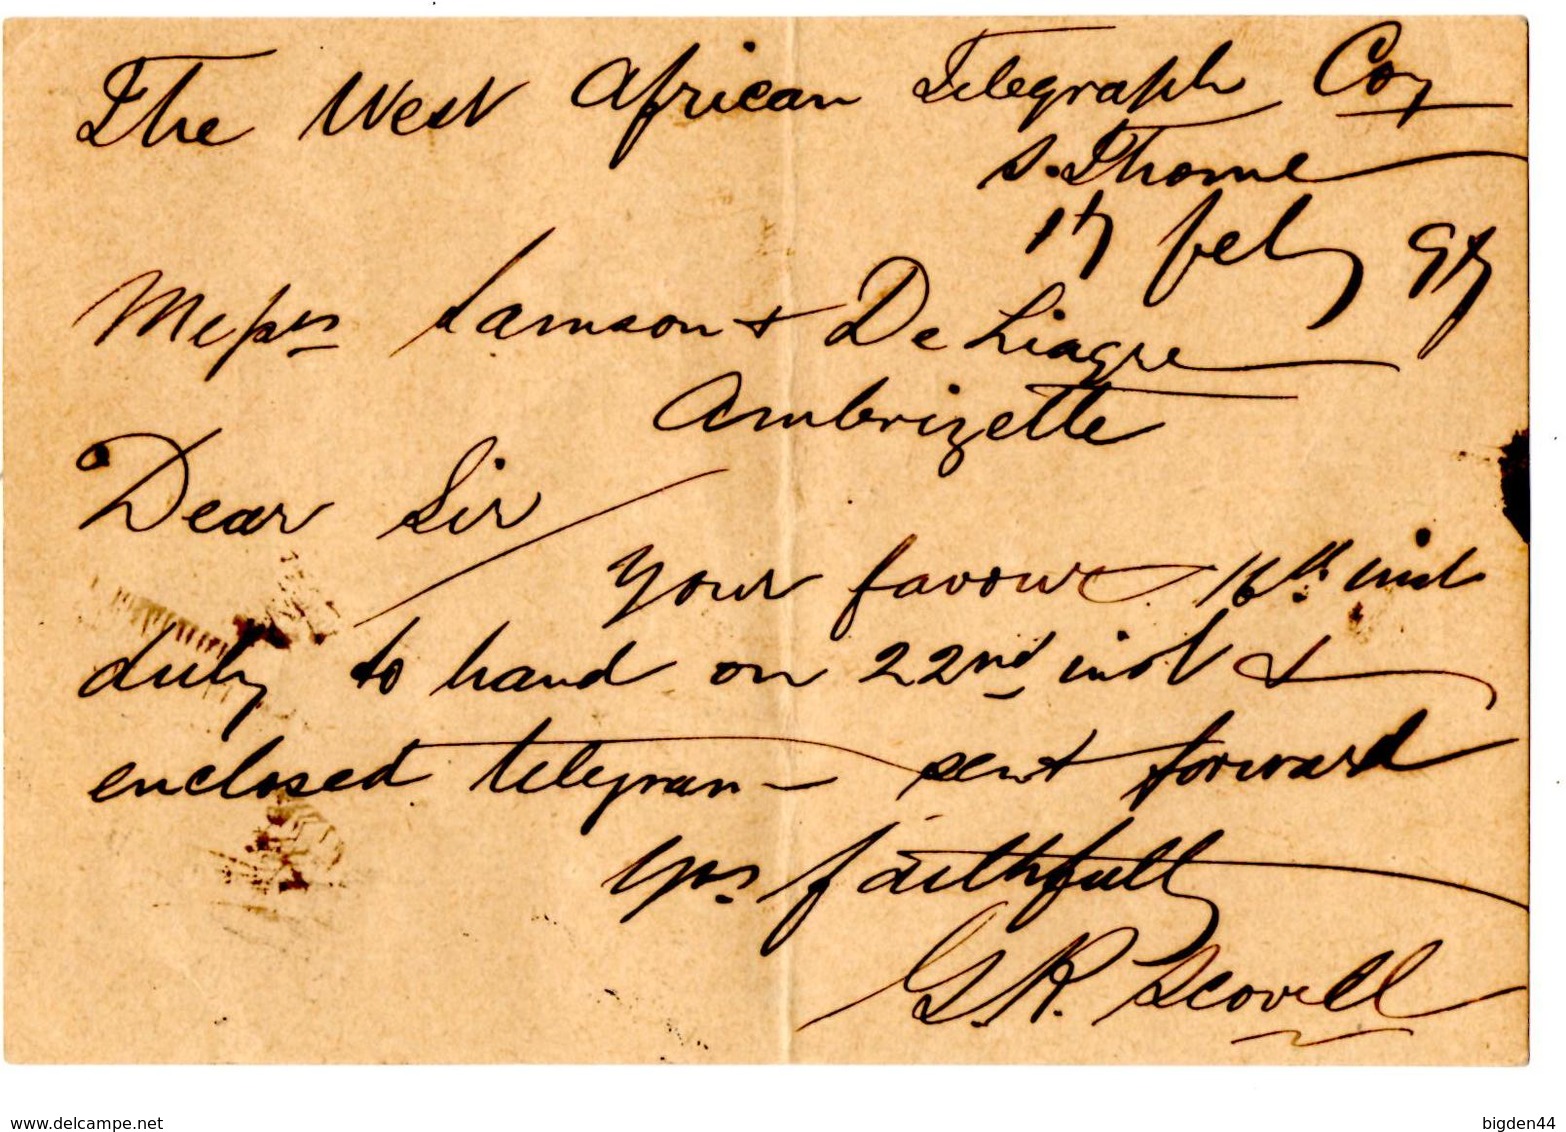 The West African Telegraph Coy
S. Thome
17 feby 97
Messrs Samson & De Liagre
Ambrizette
Dear Sir
Your favour 16th inst
duly to hand on 22nd inst &
enclosed telegram sent forward
Yrs faithfully
G.R. Scovell
www.delcampe.net
bigden44